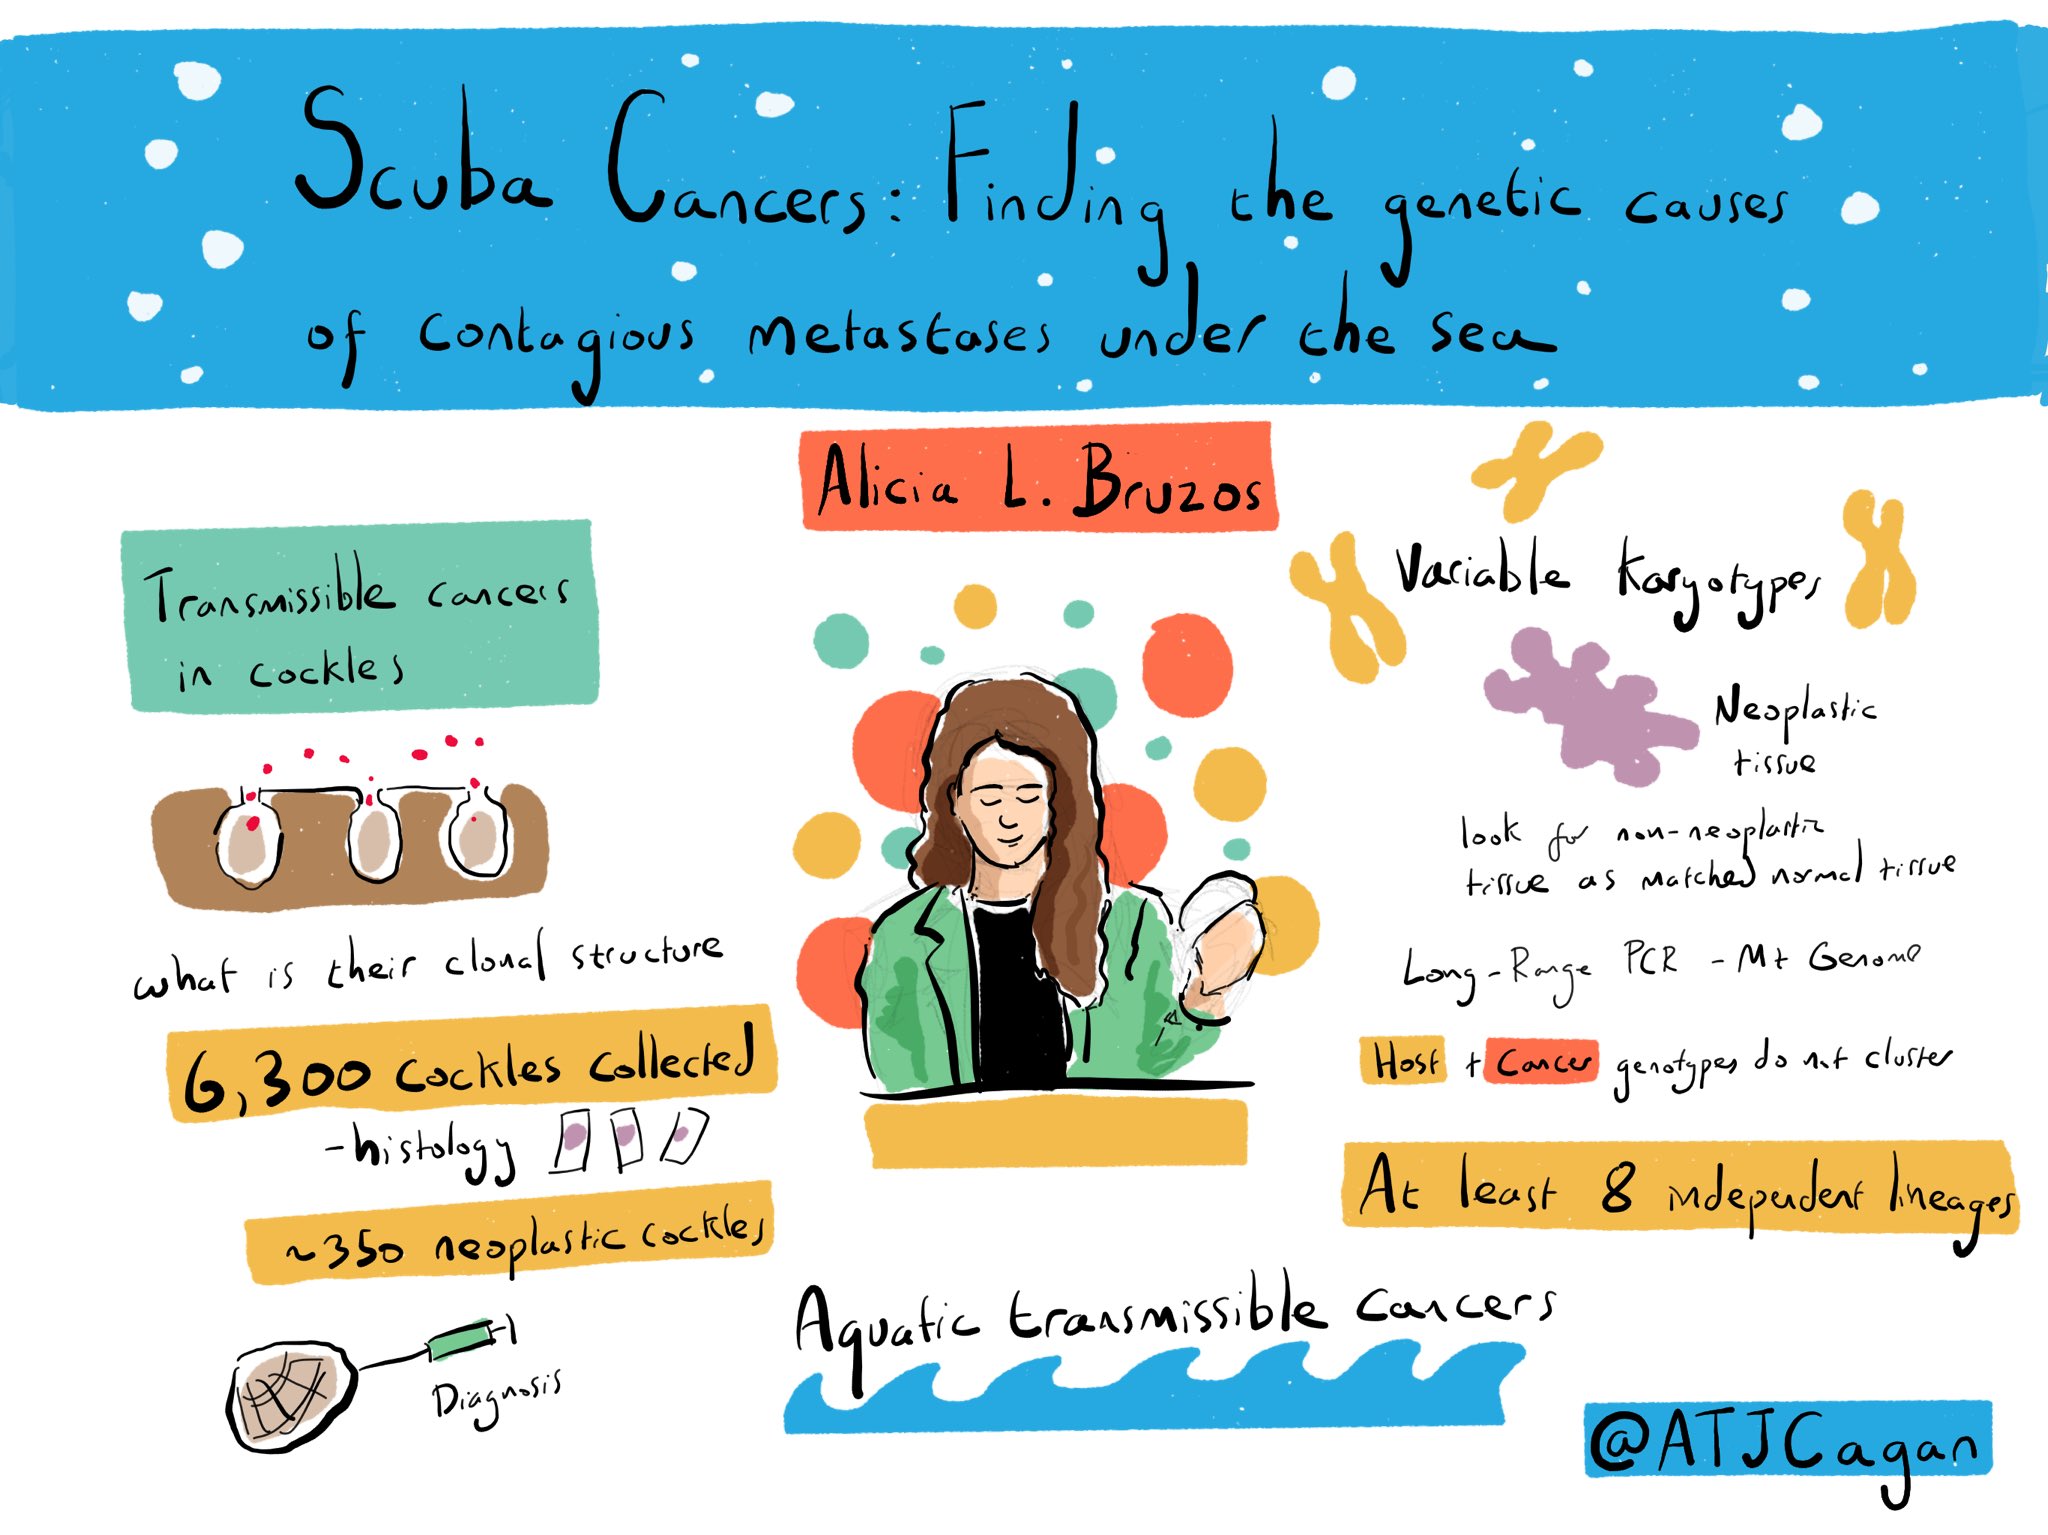 Scuba Cancers: Finding the genetic causes
of contagious metastases under the sea
Alicia L. Bruzos
Transmissible cancers
in cockles
what is their clonal structure
6,300 cockles collected
-histology
~350 neoplastic cockles
Diagnosis
Variable Karyotypes
Neoplastic
tissue
look for non-neoplastic
tissue as matched normal tissue
Long-Range PCR - Mt Genome
Host + Cancer genotypes do not cluster
At least 8 independent lineages
Aquatic transmissible cancers
@ATJCagan